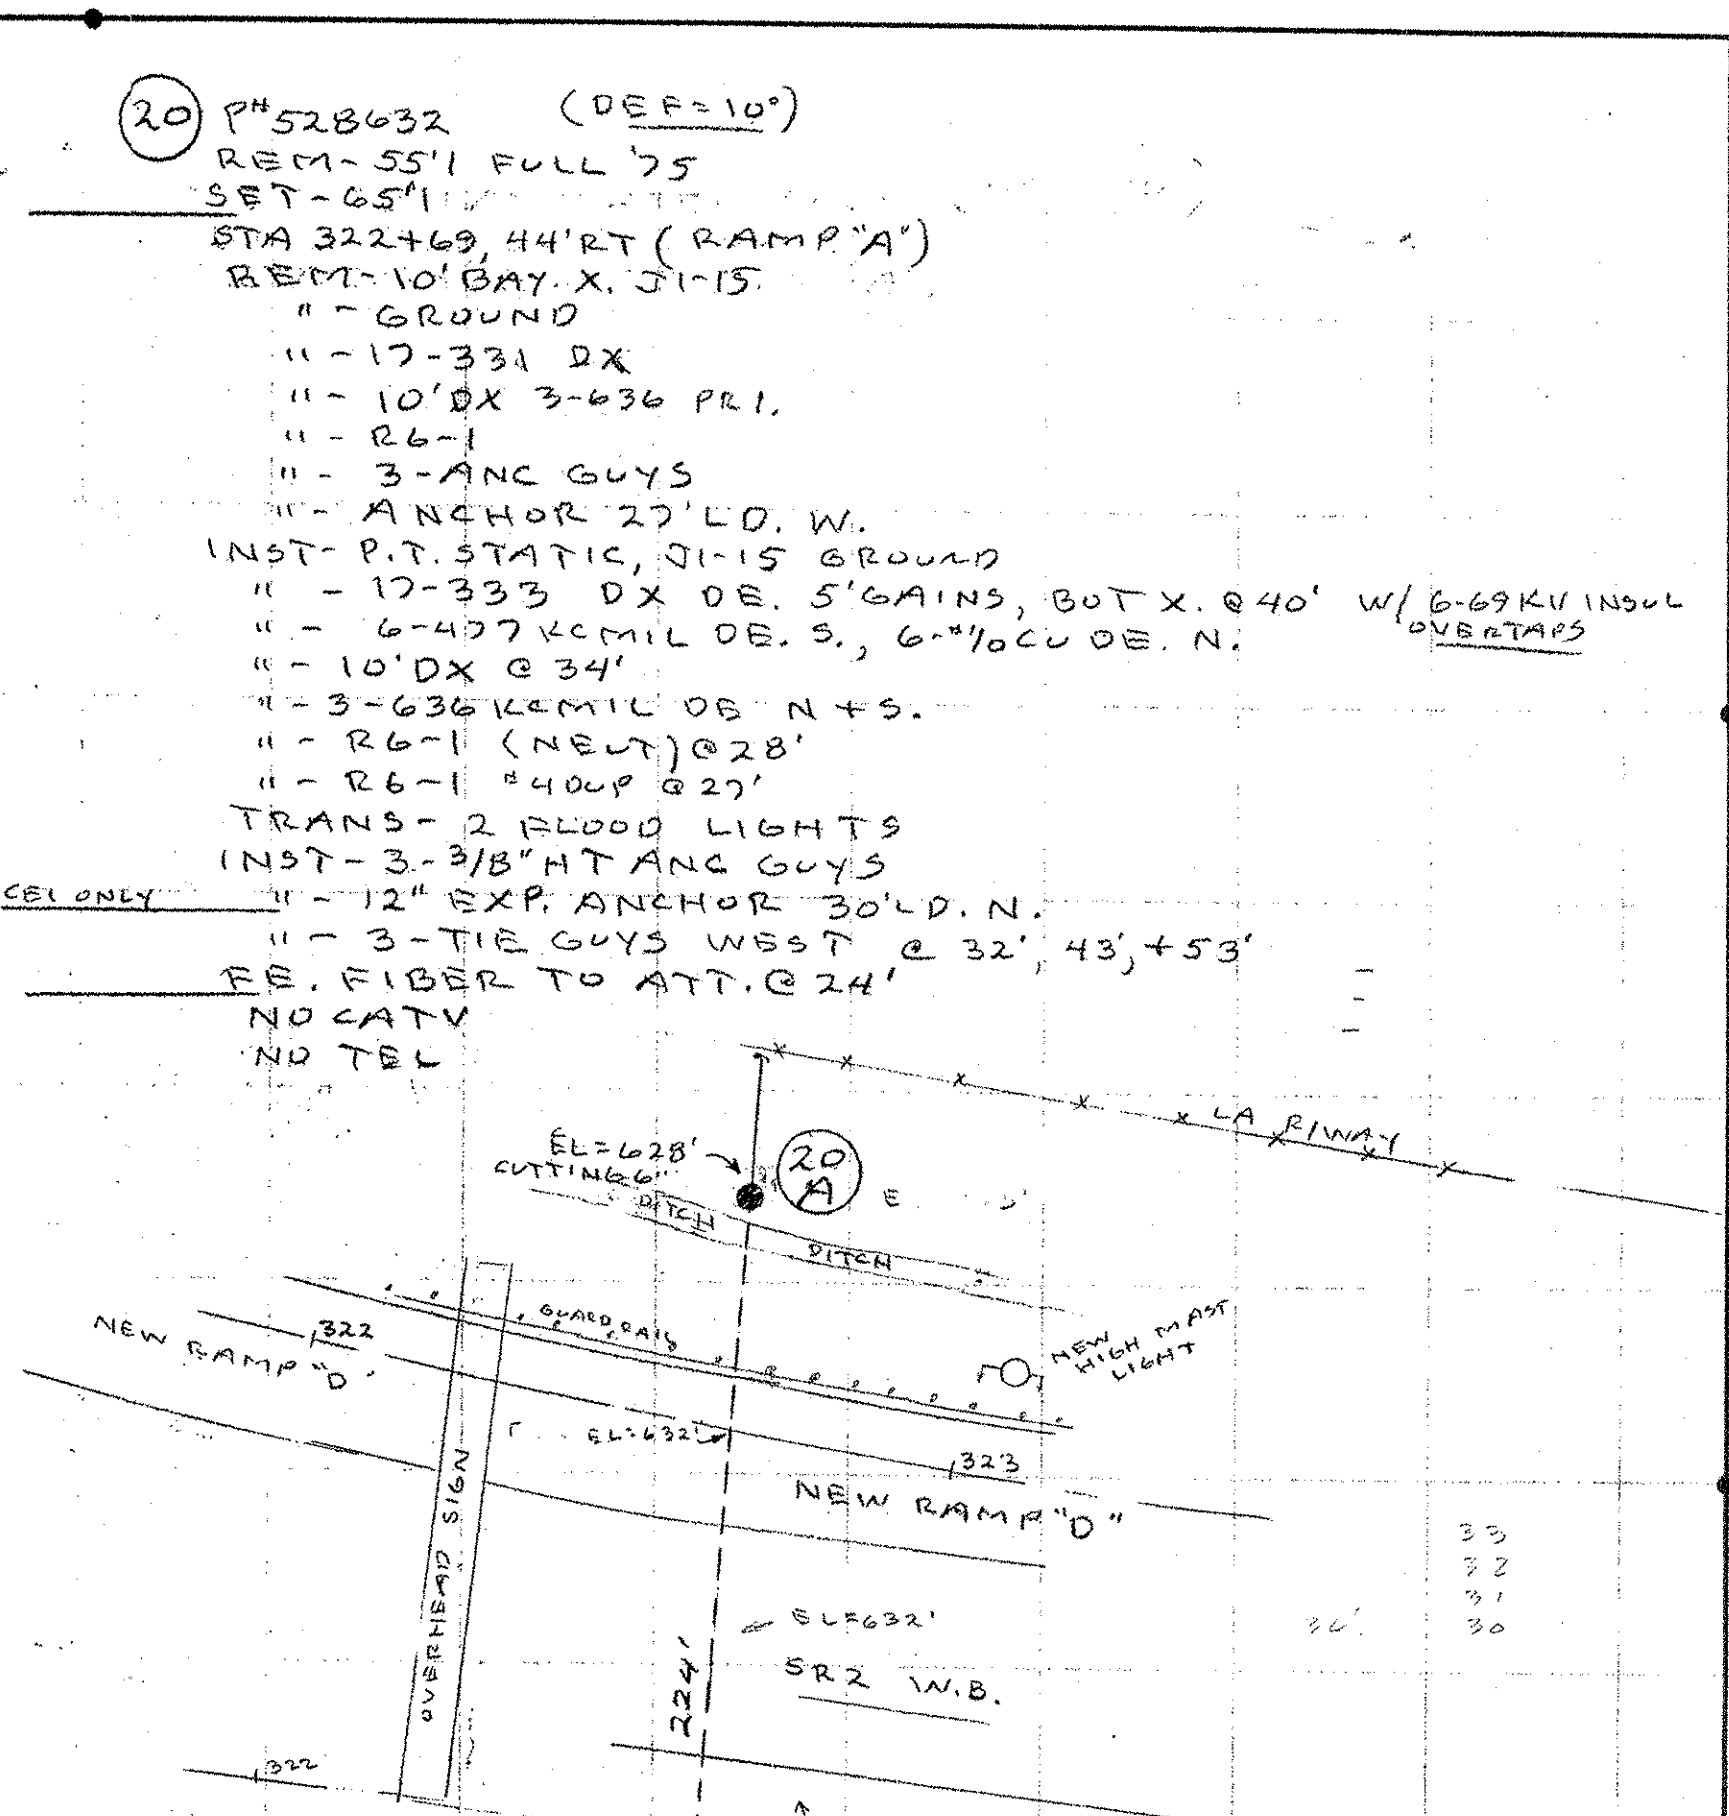 20 P#528632 (DEF=10°)
REM-55'1 FULL '75
SET-65'1
STA 322+69, 44'RT (RAMP "A")
REM-10'BAY. X. J1-15
" - GROUND
" - 17-331 DX
" - 10'DX 3-636 PRI.
" - R6-1
" - 3-ANC GUYS
" - ANCHOR 27'LD. W.
INST- P.T. STATIC, J1-15 GROUND
" - 17-333 DX DE. 5'GAINS, BOT X. @40' W/ 6-69KV INSUL
OVERTAPS
" - 6-477 KCMIL DE. S., 6-#1/0 CU DE. N.
" - 10'DX @ 34'
" - 3-636 KCMIL DE N + S.
" - R6-1 (NEUT) @ 28'
" - R6-1 #4DUP @ 27'
TRANS- 2 FLOOD LIGHTS
INST- 3-3/8" HT ANC GUYS
CEI ONLY " - 12" EXP. ANCHOR 30'LD. N.
" - 3-TIE GUYS WEST @ 32', 43', + 53'
FE. FIBER TO ATT. @ 24'
NO CATV
NO TEL
LA R/WAY
EL=628'
CUTTING 6"
20
A
E
DITCH
DITCH
GUARD RAIL
322
NEW RAMP "D"
NEW
HIGH MAST
LIGHT
EL=632'
323
NEW RAMP "D"
OVERHEAD SIGN
33
32
31
30
EL=632'
SR2 W.B.
224'
322